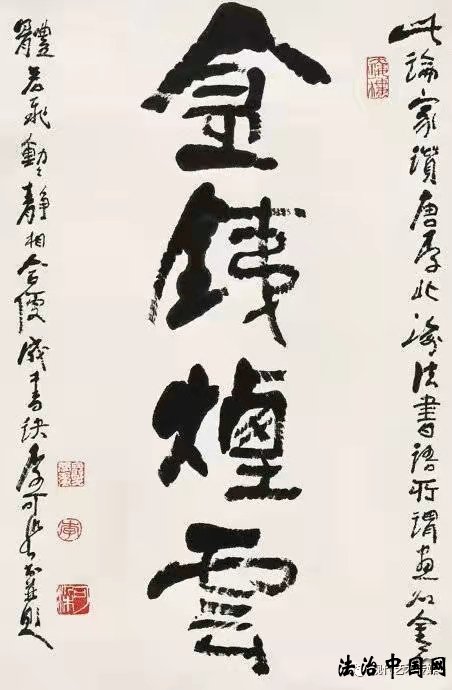 此論家讚唐李北海法書語所謂畫如金
金銕煙雲
體若飛動靜相合便成書訣李可染並題
法治中国网